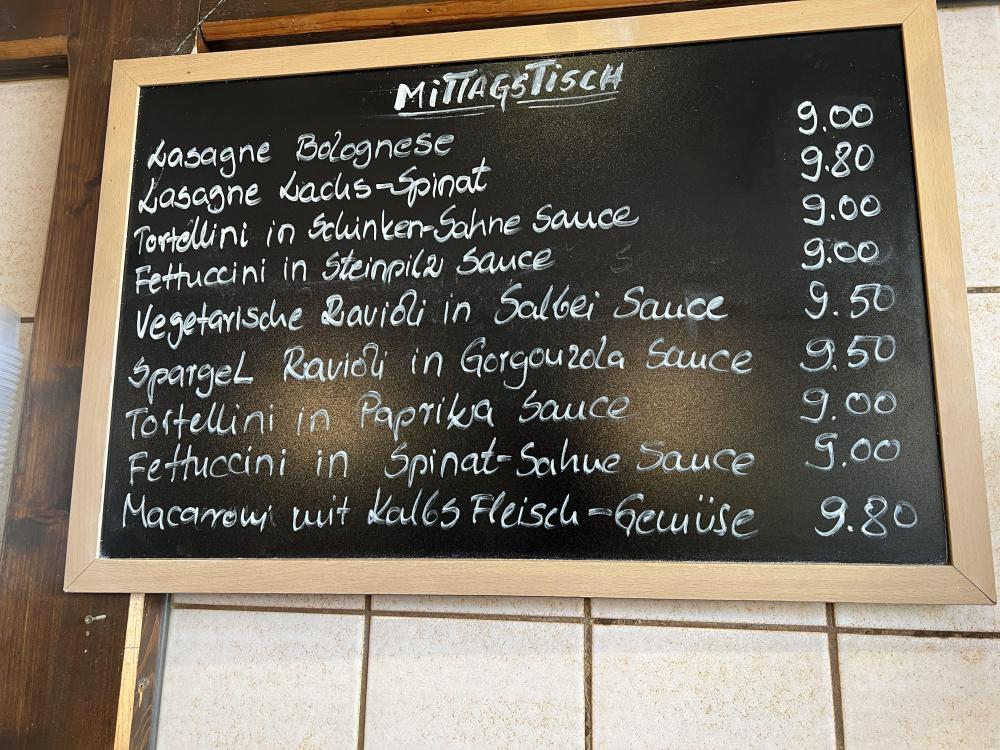 MiTTAGSTiSCH
Lasagne Bolognese 9.00
Lasagne Lachs-Spinat 9.80
Tortellini in Schinken-Sahne Sauce 9.00
Fettuccini in Steinpilz Sauce 9.00
Vegetarische Ravioli in Salbei Sauce 9.50
Spargel Ravioli in Gorgonzola Sauce 9.50
Tortellini in Paprika Sauce 9.00
Fettuccini in Spinat-Sahne Sauce 9.00
Macarroni mit Kalbs Fleisch-Gemüse 9.80